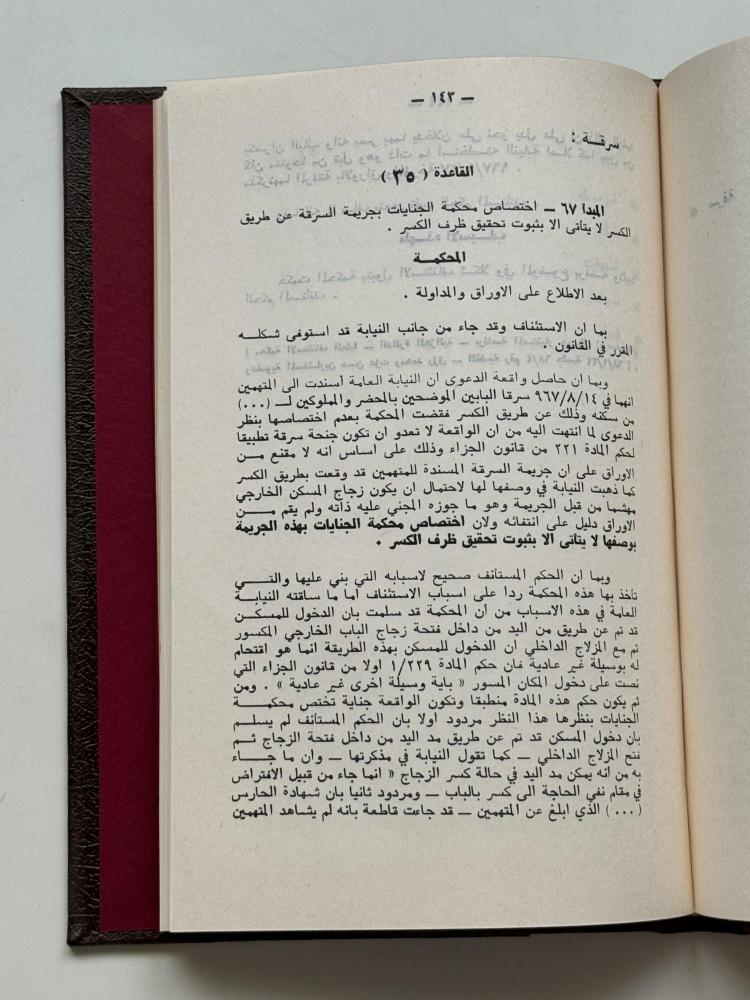 — ١٤٣ —
سرقة :
القاعدة ( ٣٥ )
المبدا ٦٧ — اختصاص محكمة الجنايات بجريمة السرقة عن طريق
الكسر لا يتاتى الا بثبوت تحقيق ظرف الكسر .
المحكمة
بعد الاطلاع على الاوراق والمداولة .
بما ان الاستئناف وقد جاء من جانب النيابة قد استوفى شكلـه
المقرر في القانون .
وبما ان حاصل واقعة الدعوى ان النيابة العامة اسندت الى المتهمين
انهما في ٩٦٧/٨/١٤ سرقا البابين الموضحين بالمحضر والمملوكين لـ ( ... )
من سكنه وذلك عن طريق الكسر فقضت المحكمة بعدم اختصاصها بنظر
الدعوى لما انتهت اليه من ان الواقعة لا تعدو ان تكون جنحة سرقة تطبيقا
لحكم المادة ٢٢١ من قانون الجزاء وذلك على اساس انه لا مقنع مـــن
الاوراق على ان جريمة السرقة المسندة للمتهمين قد وقعت بطريق الكسر
كما ذهبت النيابة في وصفها لها لاحتمال ان يكون زجاج المسكن الخارجي
مهشما من قبل الجريمة وهو ما جوزه المجني عليه ذاته ولم يقم مـــن
الاوراق دليل على انتفائه ولان اختصاص محكمة الجنايات بهذه الجريمة
بوصفها لا يتاتى الا بثبوت تحقيق ظرف الكسر .
وبما ان الحكم المستانف صحيح لاسبابه التي بني عليها والتـــي
تأخذ بها هذه المحكمة ردا على اسباب الاستئناف اما ما ساقته النيابـة
العامة في هذه الاسباب من ان المحكمة قد سلمت بان الدخول للمسكـن
قد تم عن طريق من اليد من داخل فتحة زجاج الباب الخارجي المكسور
ثم مع المزلاج الداخلي ان الدخول للمسكن بهذه الطريقة انما هو اقتحام
له بوسيلة غير عادية فان حكم المادة ١/٢٢٩ اولا من قانون الجزاء التي
نصت على دخول المكان المسور « باية وسيلة اخرى غير عادية » . ومن
ثم يكون حكم هذه المادة منطبقا وتكون الواقعة جناية تختص محكمــة
الجنايات بنظرها هذا النظر مردود اولا بان الحكم المستانف لم يسلـم
بان دخول المسكن قد تم عن طريق مد اليد من داخل فتحة الزجاج ثـم
فتح المزلاج الداخلي — كما تقول النيابة في مذكرتها — وان ما جـــاء
به من انه يمكن مد اليد في حالة كسر الزجاج « انما جاء من قبيل الافتراض
في مقام نفي الحاجة الى كسر بالباب — ومردود ثانيا بان شهادة الحارس
( ... ) الذي ابلغ عن المتهمين — قد جاءت قاطعة بانه لم يشاهد المتهمين